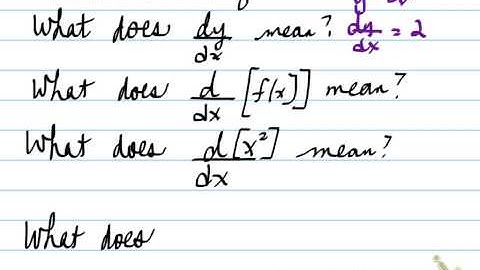 What does dy/dx mean? dy/dx = 2
What does d/dx [f(x)] mean?
What does d[x²]/dx mean?
What does